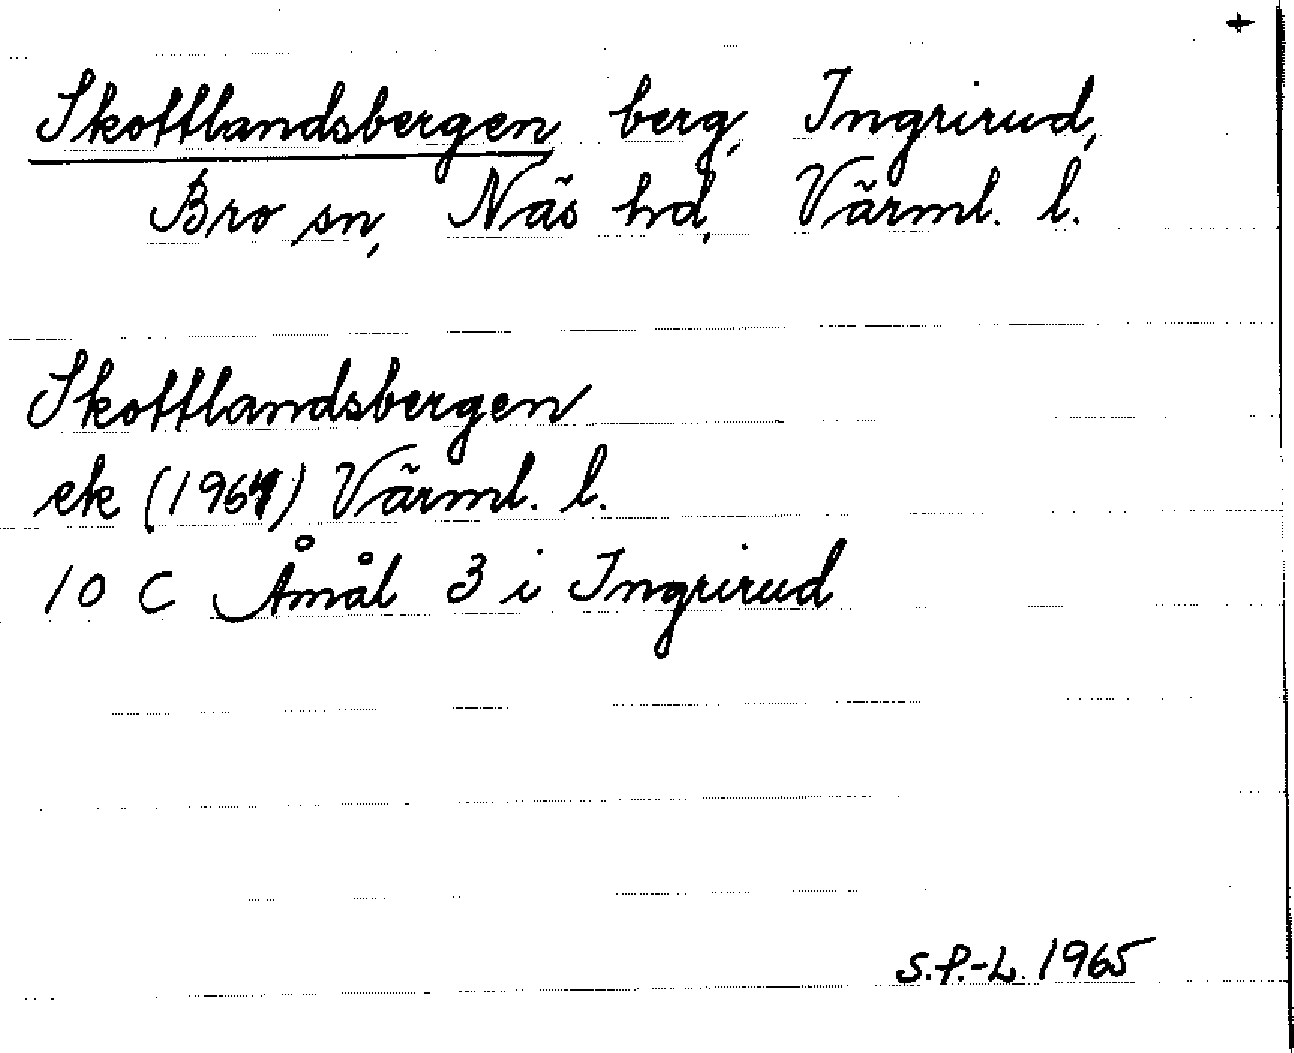 +
Skottlandsbergen berg, Ingrirud,
Bro sn, Näs hd, Värml. l.
Skottlandsbergen
ek (1964) Värml. l.
10 C Åmål 3 i Ingrirud
S.P.-L. 1965